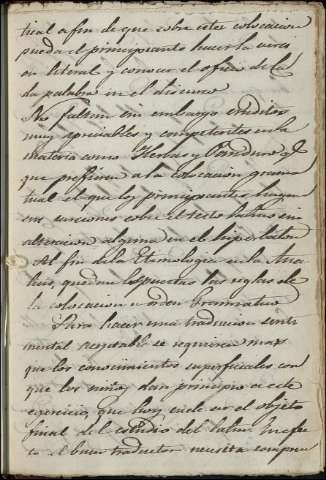 trical a fin de que sobre este colocacion
pueda el principiante hacer la versi
on literal y conocer el oficio de ca
da palabra en el discurso
No faltan sin embargo eruditos
muy apreciables y competentes en la
materia como Herbas y Panduro &
que prefieren a la colocacion grama
tical el que los principiantes hagan
sus versiones sobre el testo latino sin
alteracion alguna en el hiperbaton
Al fin de la Etimologia en la
quedan espuestas las reglas de
la colocacion u orden Gramatical
Para hacer una traducion senti
mental aceptable se requieren mas
que los conocimientos superficiales con
que los niños dan principio a este
ejercicio, que hoy es el objeto
final del estudio del latin. En efec
to el buen traductor necesita compren